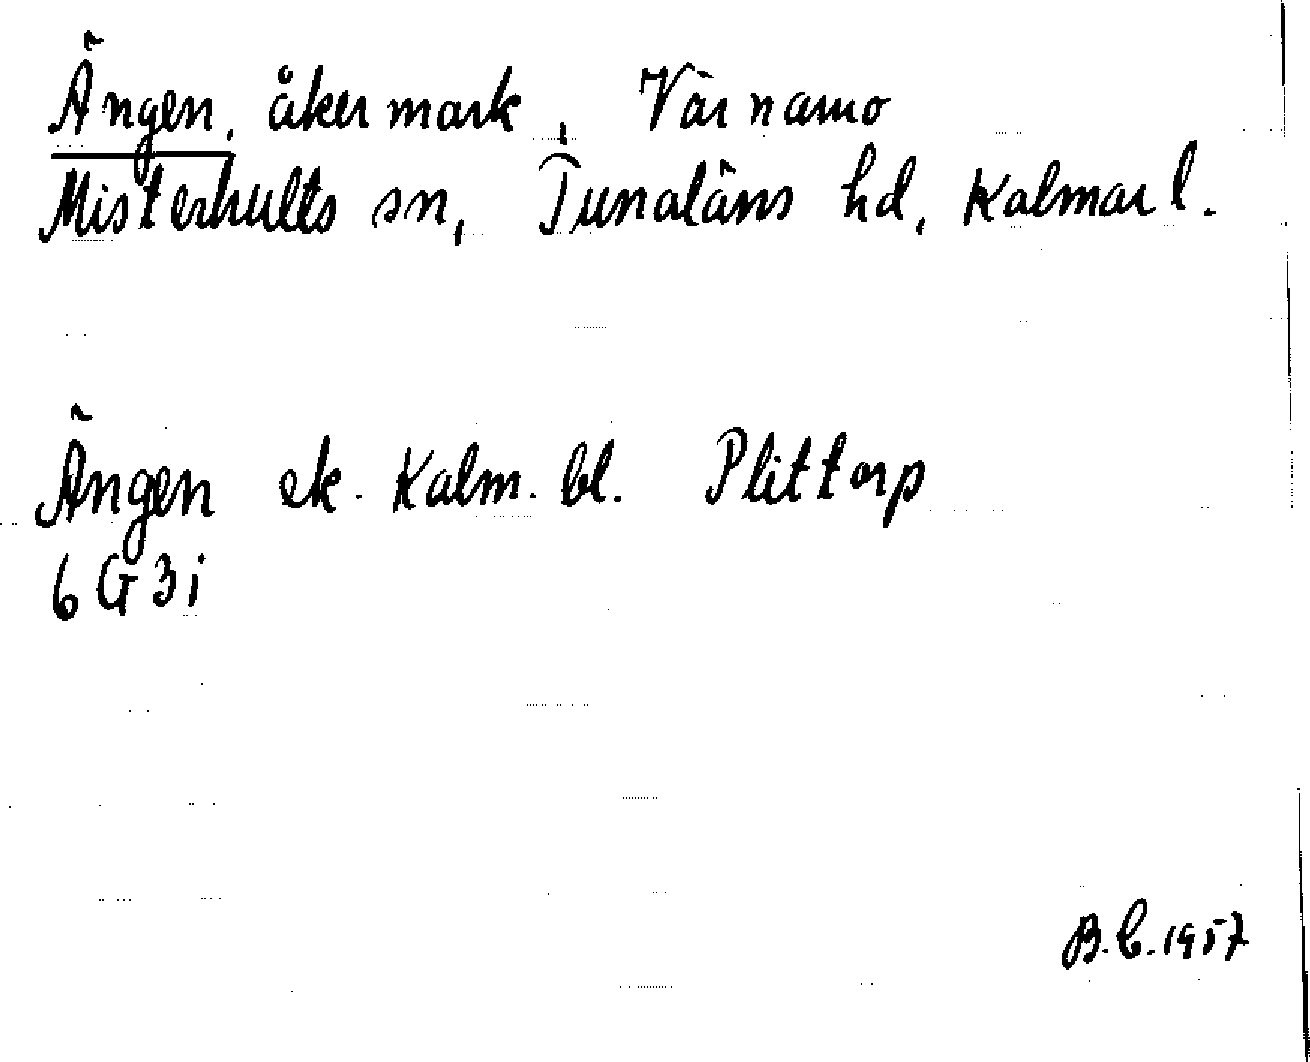 Ängen, åkermark, Värnamo
Misterhults sn, Tunaläns hd, Kalmar l.
Ängen ek. Kalm. bl. Plittorp
6 G 3 i
B.C. 1957